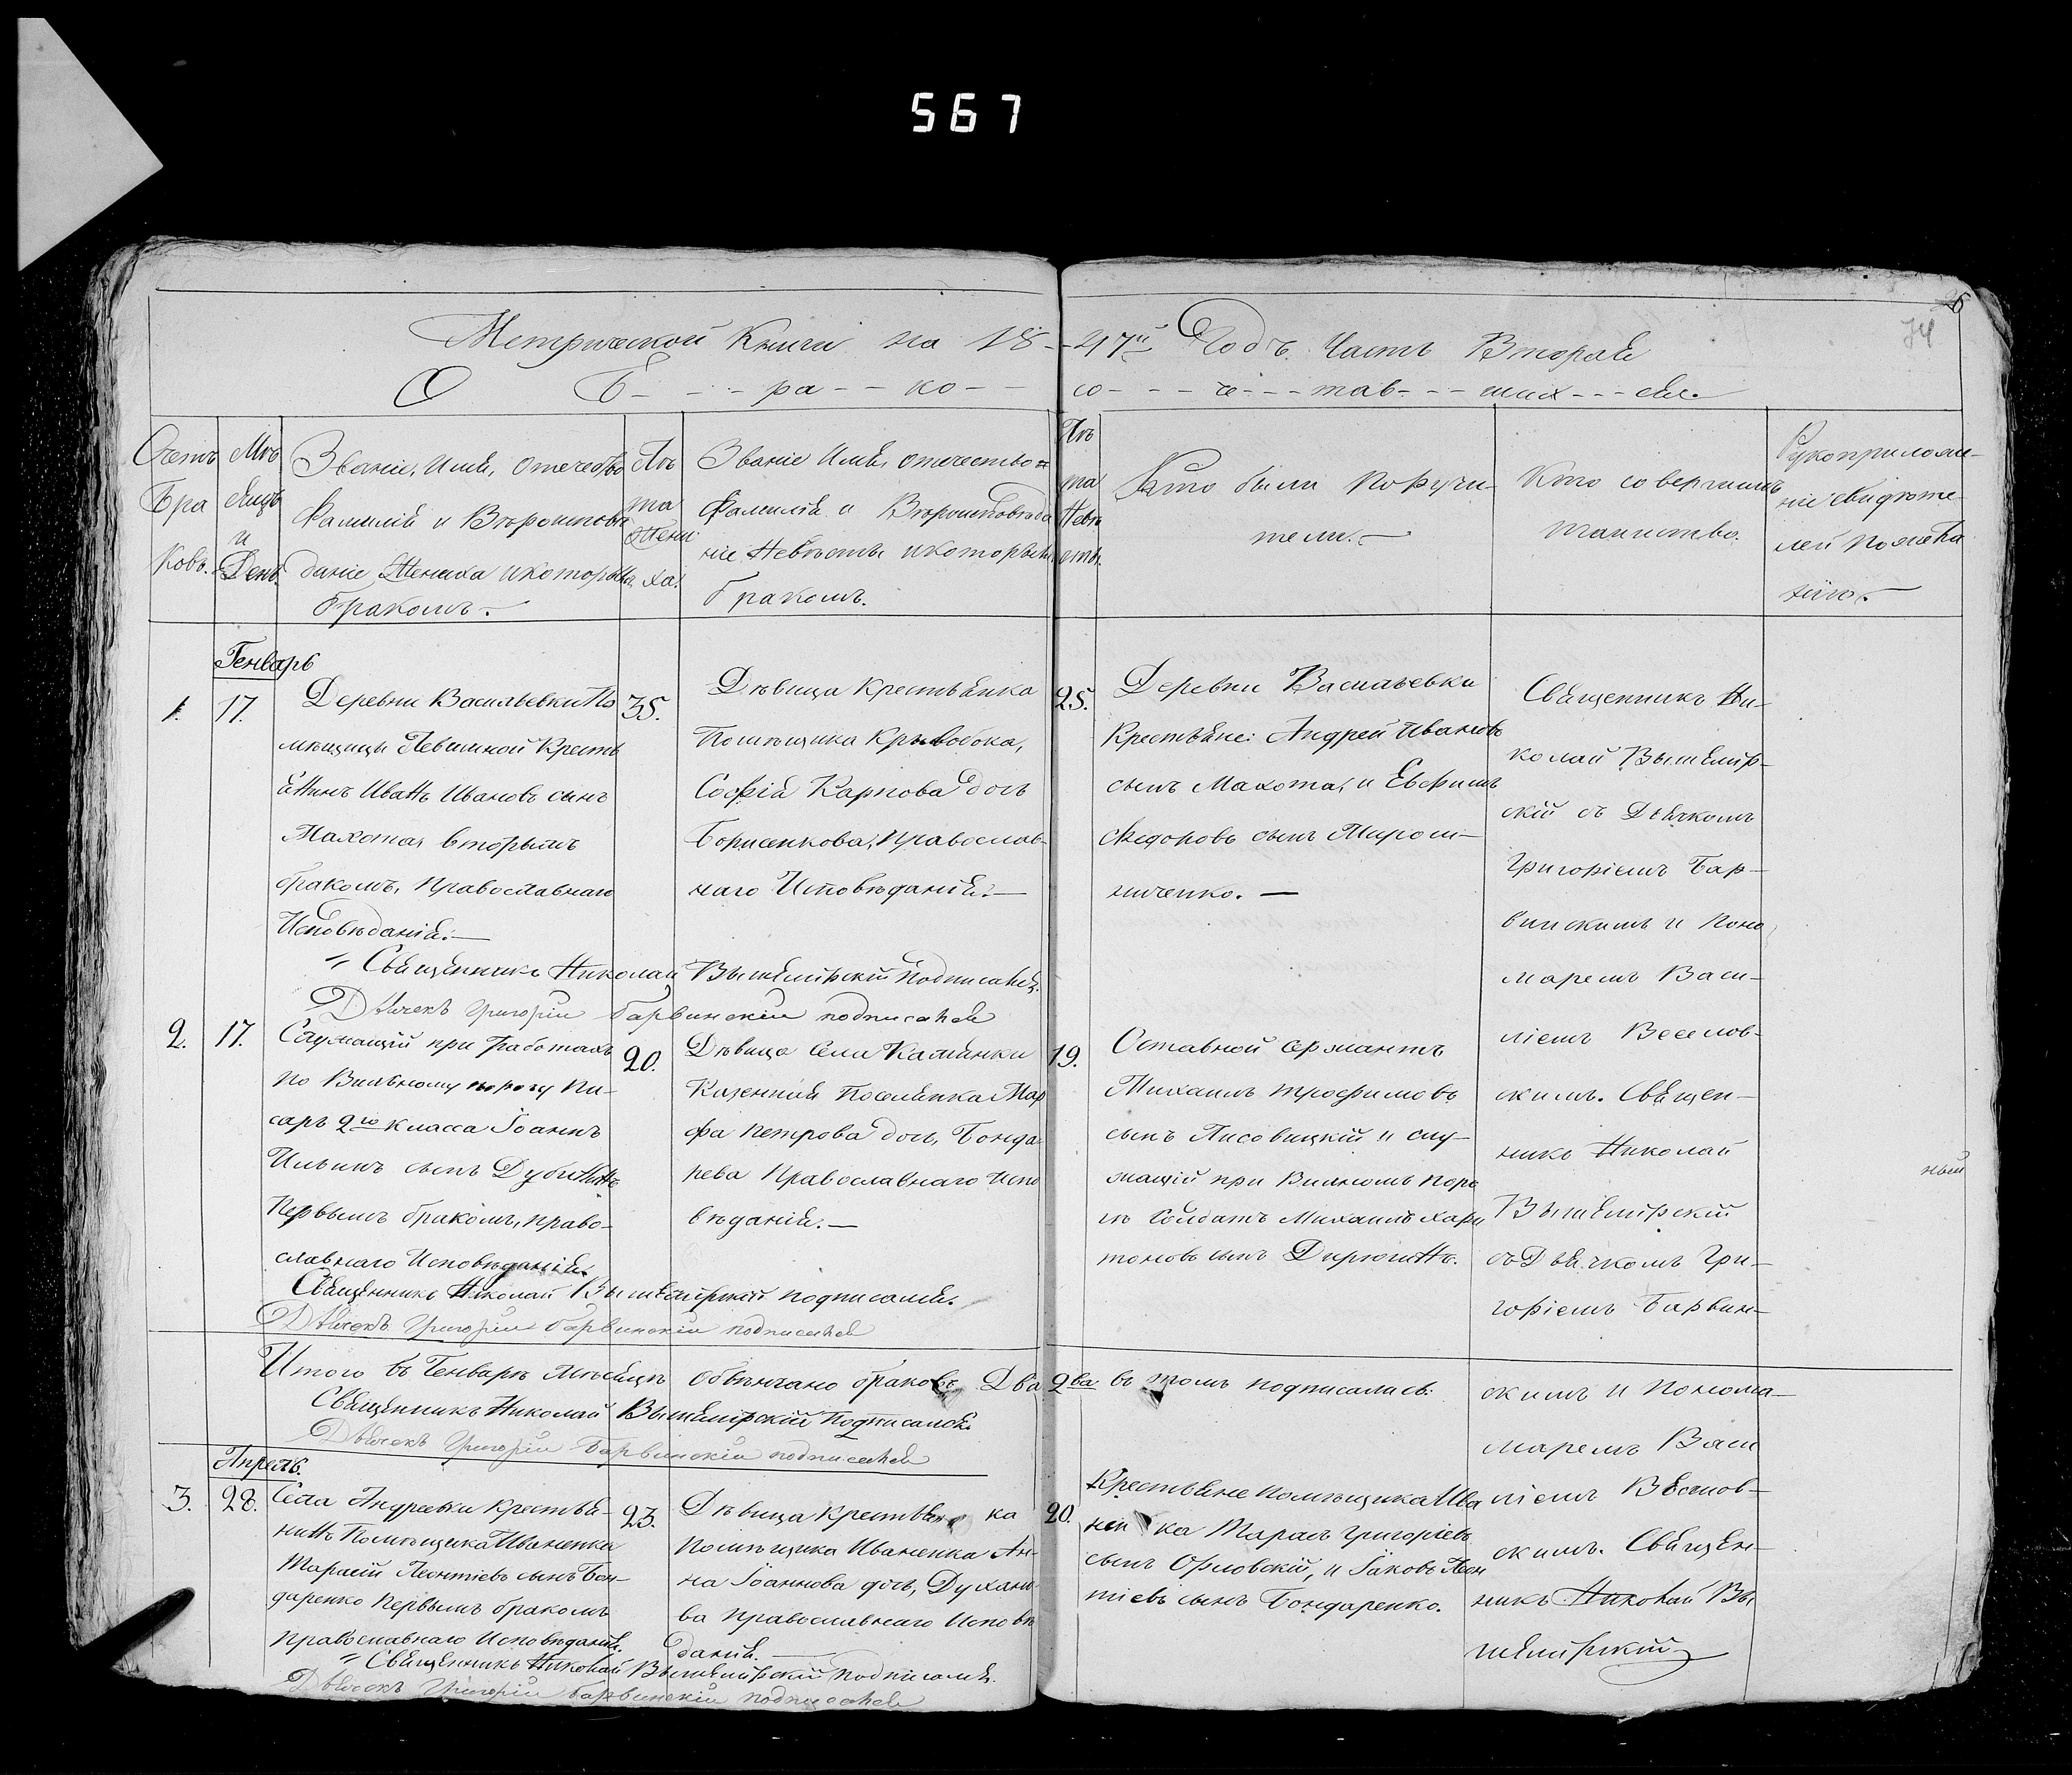 567
26
74
Метрической Книги на 18--47й Годъ. Часть Вторая
О Б---ра--ко--со---че---тав---ших---ся.
Счетъ
Бра
ковъ.
Мѣ
сяцъ
и
День.
Званіе, Имя, отечество
Фамилія и Вѣроисповѣ
даніе Жениха икоторымъ
бракомъ.
Лѣ
та
Жени
ха.
Званіе Имя, отечество и
Фамилія и Вѣроисповѣда
ніе Невѣсты икоторымъ
бракомъ.
Лѣ
та
Невѣ
сты.
Кто были Поручи-
тели.
Кто совершилъ
таинство.
Рукоприложе-
ніе свидѣте-
лей по
Генварь
1.
17.
Деревни Васильевки По
мѣщицы Левшиной Кресть
янинъ Иванъ Ивановъ сынъ
Махота, вторымъ
бракомъ, Православнаго
Исповѣданія.
35.
Дѣвица Крестьянка
Помѣщика Кривобока,
Софія Карпова дочь
Борисенкова, Православ-
наго Исповѣданія.
25.
Деревни Васильевки
Крестьяне: Андрей Ивановъ
сынъ Махота, и Евфимъ
Федоровъ сынъ Мирош-
ниченко.
Священникъ Ни-
колай Вышемір-
скій съ Дьячкомъ
Григоріемъ Бар-
винскимъ и Поно
маремъ Васи-
ліемъ Веселов-
скимъ. Священ-
никъ Николай
Вышемірскій
съ Дьячкомъ Гри-
горіемъ Барвин-
скимъ и Понома-
маремъ Васи
ліемъ Веселов-
скимъ. Священ-
никъ Николай Вы
шемірскій
Священникъ Николай Вышемірскій Подписался.
Дьячекъ Григорій Барвинскій подписался
2.
17.
Служащій при работахъ
по Вильному порогу Пи-
сарь 2го класса Іоаннъ
Ильинъ сынъ Дубининъ
Первымъ бракомъ, право-
славнаго Исповѣданія.
20.
Дѣвица Села Камянки
Казенная Поселянка Мар
фа Петрова дочь, Бонда-
рева Православнаго Испо
вѣданія.
19.
Оставной сержантъ
Михаилъ Трофимовъ
сынъ Лисовицкій и слу-
жащій при Вилномъ поро
гѣ Солдатъ Михаилъ Хари
тоновъ сынъ Дирюгинъ.
ный
Священникъ Николай Вышемірскій подписался.
Дьячекъ Григорій Барвинскій подписался
Итого въ Генварѣ Мѣсяцѣ Обвѣнчано браковъ Два 2ва въ томъ подписались:
Священникъ Николай Вышемірскій Подписался.
Дьячекъ Григорій Барвинскій подписался
Апрель.
3.
28.
Села Андреевки Крестья-
нинъ Помѣщика Иваненка
Тарасій Леонтіевъ сынъ Бон-
даренко Первымъ бракомъ
Православнаго Исповѣданія.
23.
Дѣвица Крестьян ка
Помѣщика Иваненка Ан-
на Іоаннова дочь, Духано-
ва православнаго Исповѣ
данія.
20.
Крестьяне Помѣщика Ива
нен ка Тарасъ Григоріевъ
сынъ Орловскій, и Іаковъ Леон
тіевъ сынъ Бондаренко.
Священникъ Николай Вышемірскій Подписался.
Дьячекъ Григорій Барвинскій подписался